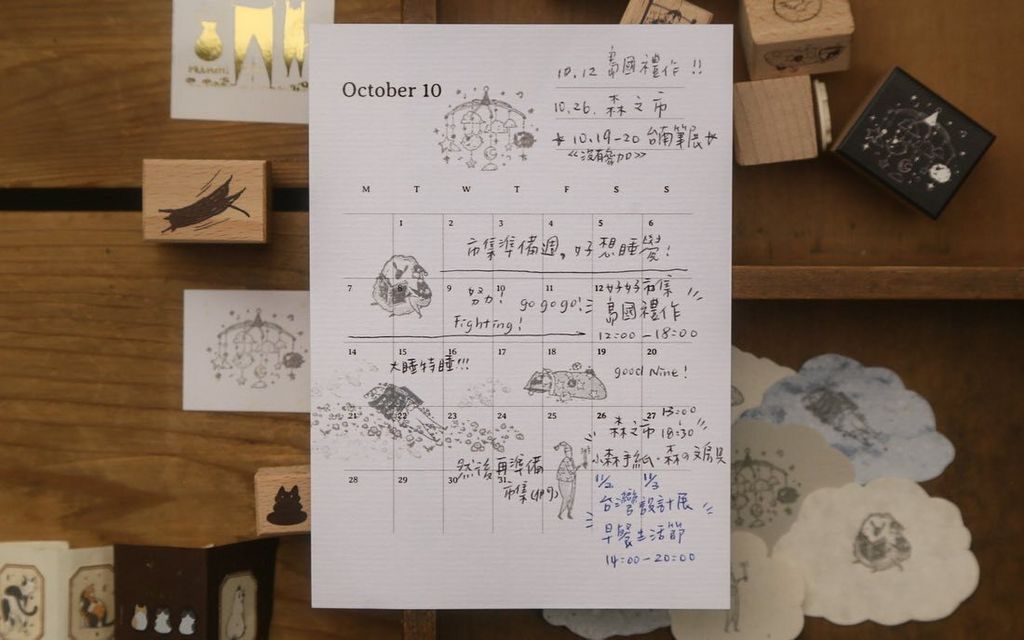 October 10
10.12 島國禮作!!
10.26. 森之市
* 10.19-20 台南筆展*
《沒有參加》
M T W T F S S
1 2 3 4 5 6
市集準備週,好想睡覺!
7 8 9 10 11 12
努力! go go go!
Fighting!
好好市集
島國禮作
12:00-18:00
14 15 16 17 18 19 20
大睡特睡!!!
good Nine!
21 22 23 24 25 26 27
13:00
18:30
森之市
小森手紙·森の文房具
28 29 30 31
然後再準備
市集
11/2 11/3
台灣設計展
早餐生活節
14:00-20:00